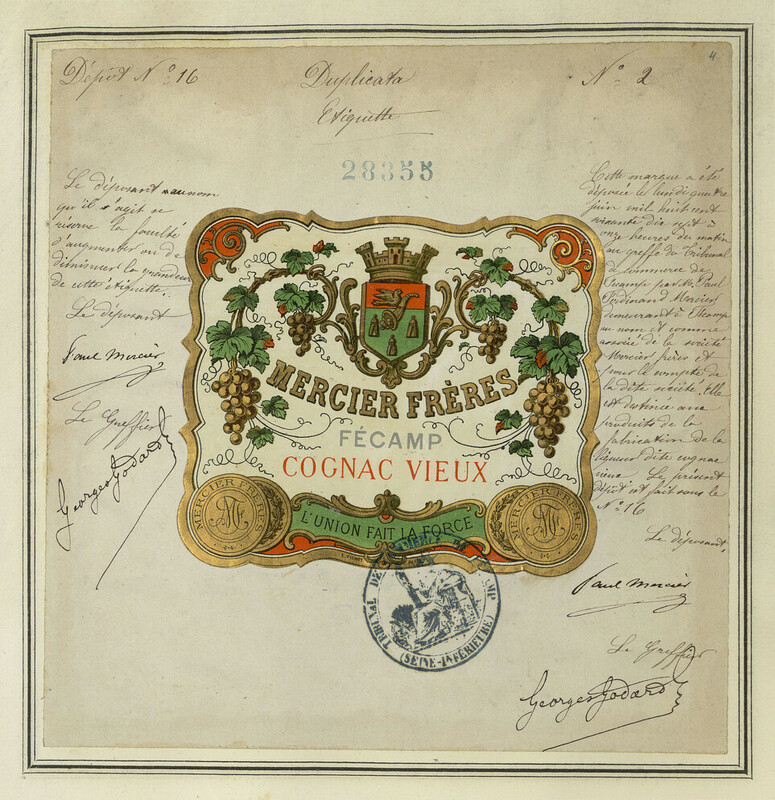 4
Dépôt N° 16
Duplicata
N° 2
Etiquette
28355
Le déposant au nom
qu'il s'agit se
réserve la faculté
d'augmenter ou de
diminuer la grandeur
de cette étiquette.
Le déposant
Paul Mercier
Le Greffier
Georges Godard
MERCIER FRÈRES
FÉCAMP
COGNAC VIEUX
L'UNION FAIT LA FORCE
MERCIER FRÈRES
MERCIER FRÈRES
TRIBUNAL DE COMMERCE DE FÉCAMP
(SEINE-INFÉRIEURE)
Cette marque a été
déposée le lundi quatre
juin mil huit cent
soixante dix sept à
onze heures du matin
au greffe du Tribunal
de commerce de
Fécamp par M. Paul
Ferdinand Mercier
demeurant à Fécamp
au nom et comme
associé de la société
Mercier frères et
pour le compte de
la dite société. Elle
est destinée aux
produits de la
fabrication de la
liqueur dite cognac
vieux. Le présent
dépôt est fait sous le
N° 16
Le déposant,
Paul Mercier
Le Greffier
Georges Godard